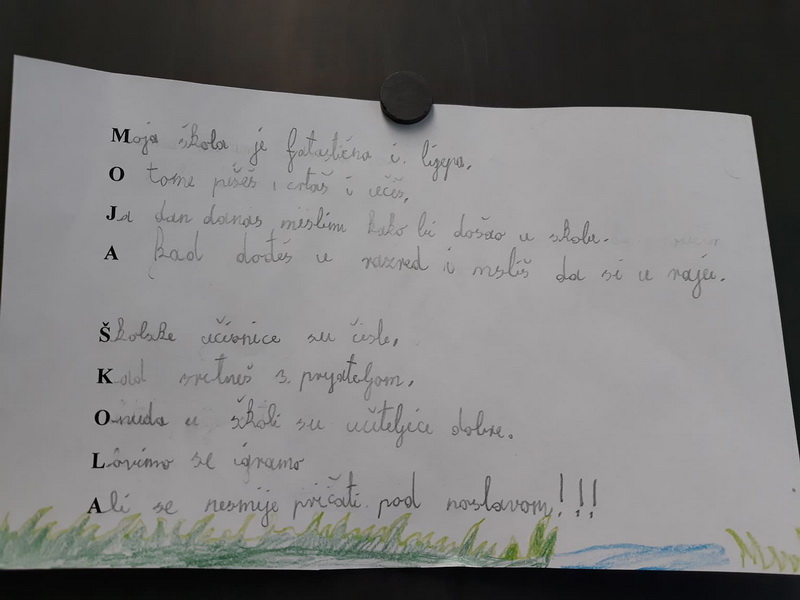 Moja škola je fatastična i lijepa,
O tome pišeš, crtaš i učiš,
Ja dan danas mislim kako bi došao u školu.
A kad dođeš u razred i msliš da si u raju.
Školske učionice su čiste,
Kad sretneš s prijateljom,
Onuda u školi su učiteljice dobre.
Lovimo se igramo
Ali se nesmije pričati pod naslavom!!!